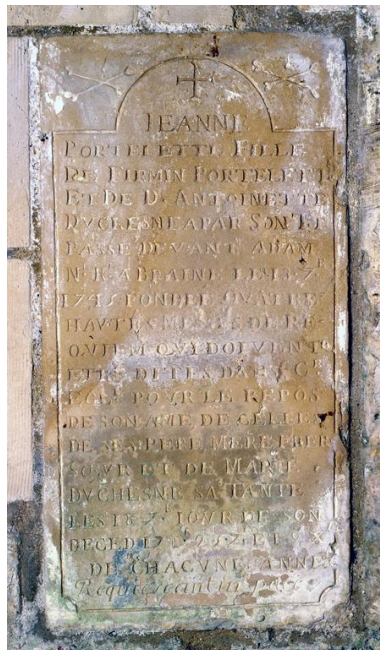 IEANNE
PORTELETTE FILLE
DE FIRMIN PORTELETTE
ET DE D. ANTOINETTE
DVCHESNE A PAR SON TT
PASSE DEVANT ADAM
Nre Rl A BRAINE LE
1745 FONDE QVATRE
HAVTES MESSE DE RE-
QVIEM QVI DOIVENT
ETRE DITES DANS C
POVR LE REPOS
DE SON AME DE CELLES
DE SES PERE MERE FRER
SOEVR ET DE MARIE
DVCHESNE SA TANTE
LES IOVR DE SON
DECED
DE CHACVNE ANNE
Requiescant in pace